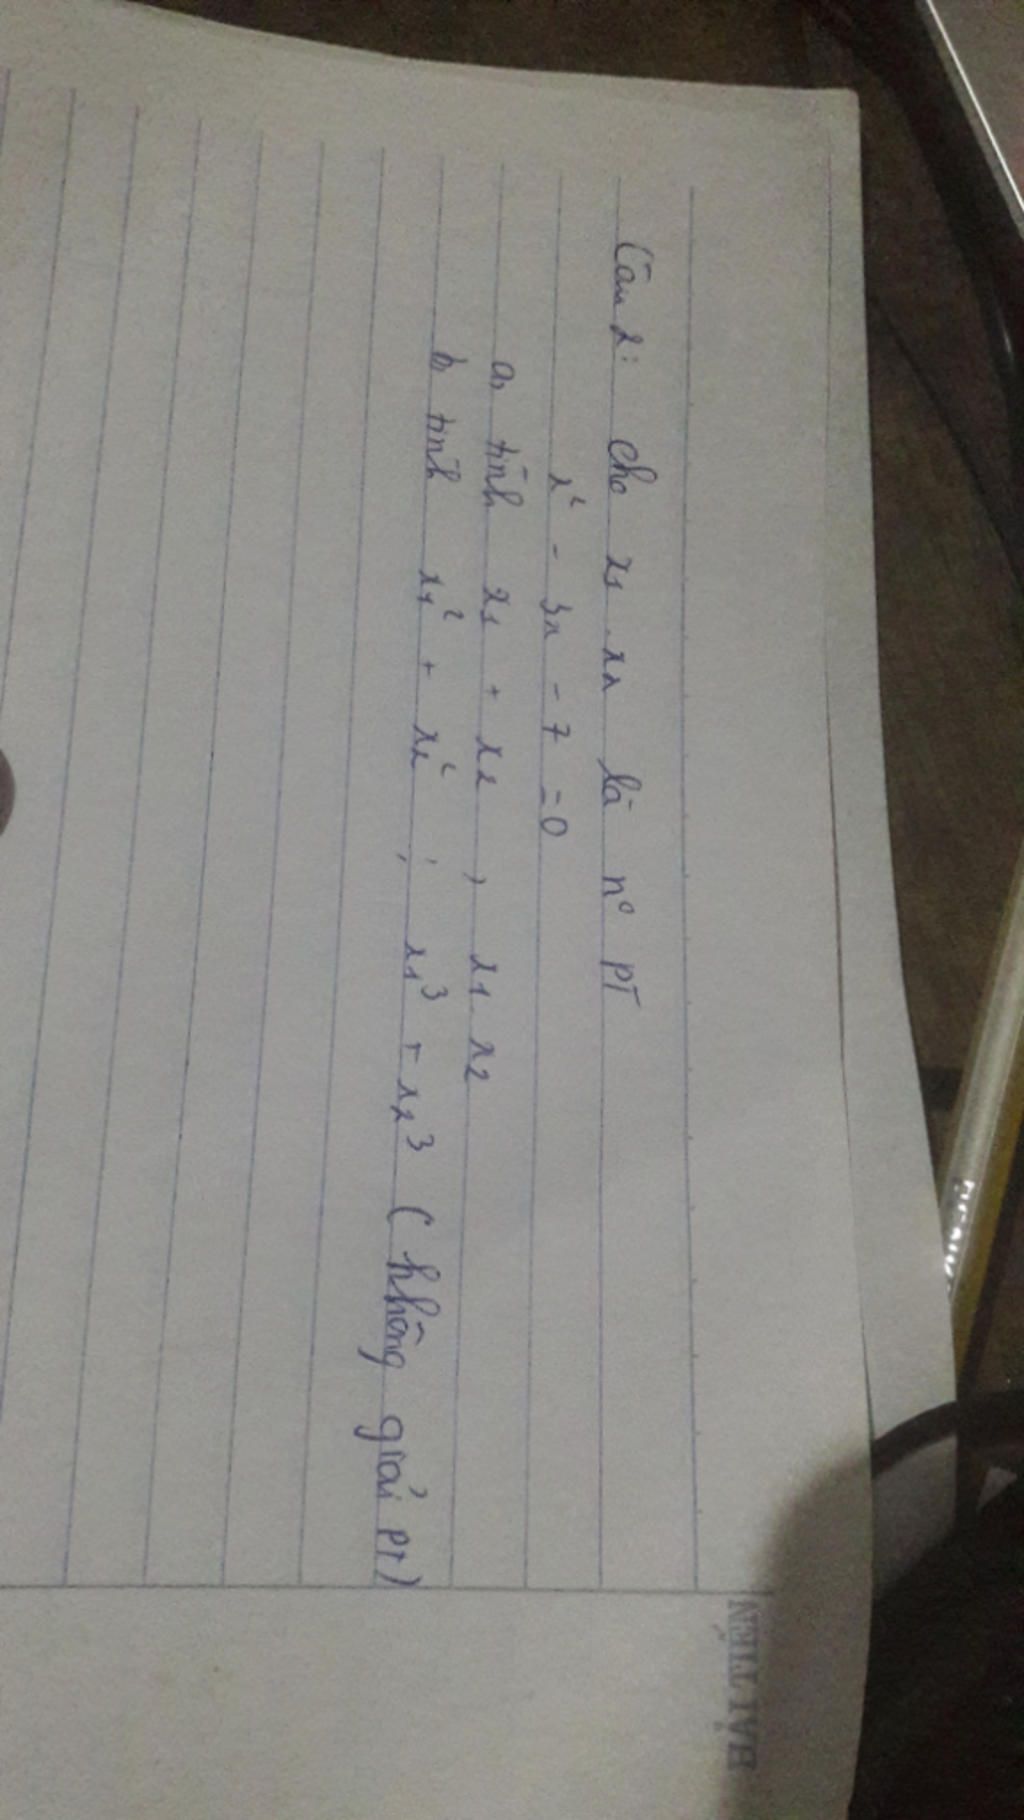 Câu 2: Cho x1, x2 là n° PT
x² - 3x - 7 = 0
a, tính x1 + x2 , x1 . x2
b, tính x1² + x2² ; x1³ + x2³ (không giải PT)
HẢI TIẾN